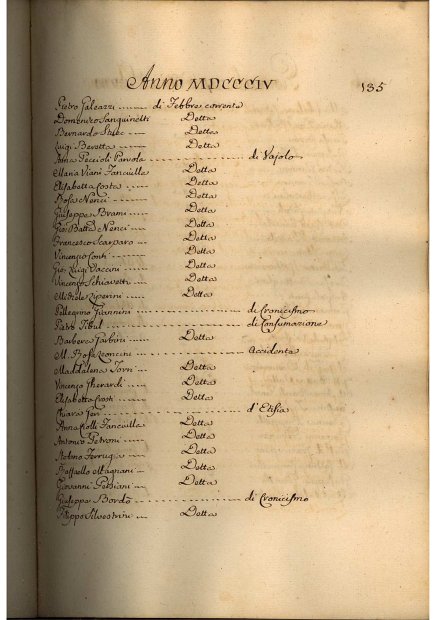 Anno MDCCCIV 135
Pietro Galeazzi di Febbre corrente
Domenico Sanguinetti Detta
Bernardo Detta
Luigi Beretta Detta
Anna Peccioli Parvola di Vajolo
Maria Viani Fanciulla Detta
Elisabetta Costa Detta
Rosa Nenci Detta
Giuseppe Brami Detta
Gio: Batta Nenci Detta
Francesco Scarparo Detta
Vincenzo Conti Detta
Gio: Luigi Vaccini Detta
Vincenzo Schiavetti Detta
Michele Riperini Detta
Pellegrino Giannini di Cronicismo
Pietro di Consumazione
Barbera Garboni Detta
M. Rosa Leoncini Accidenta
Maddalena Torri Detta
Vincenzo Gherardi Detta
Elisabetta Detta
Chiara d'Etisia
Anna Colli Fanciulla Detta
Antonio Petroni Detta
Stefano Ferrugia Detta
Raffaello Magnani Detta
Giovanni Persiani Detta
Giuseppe Bordò di Cronicismo
Filippo Silvestrini Detta